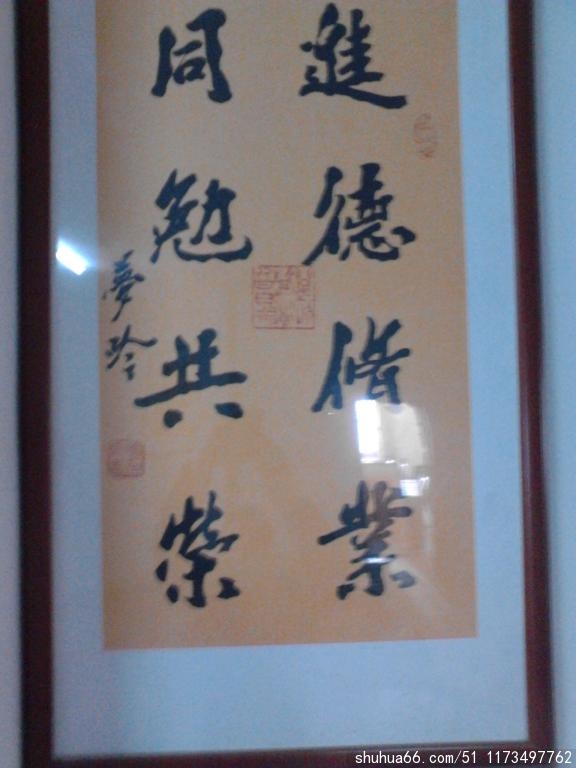 進德脩業
同勉共榮
夢玲
shuhua66.com/51 1173497762